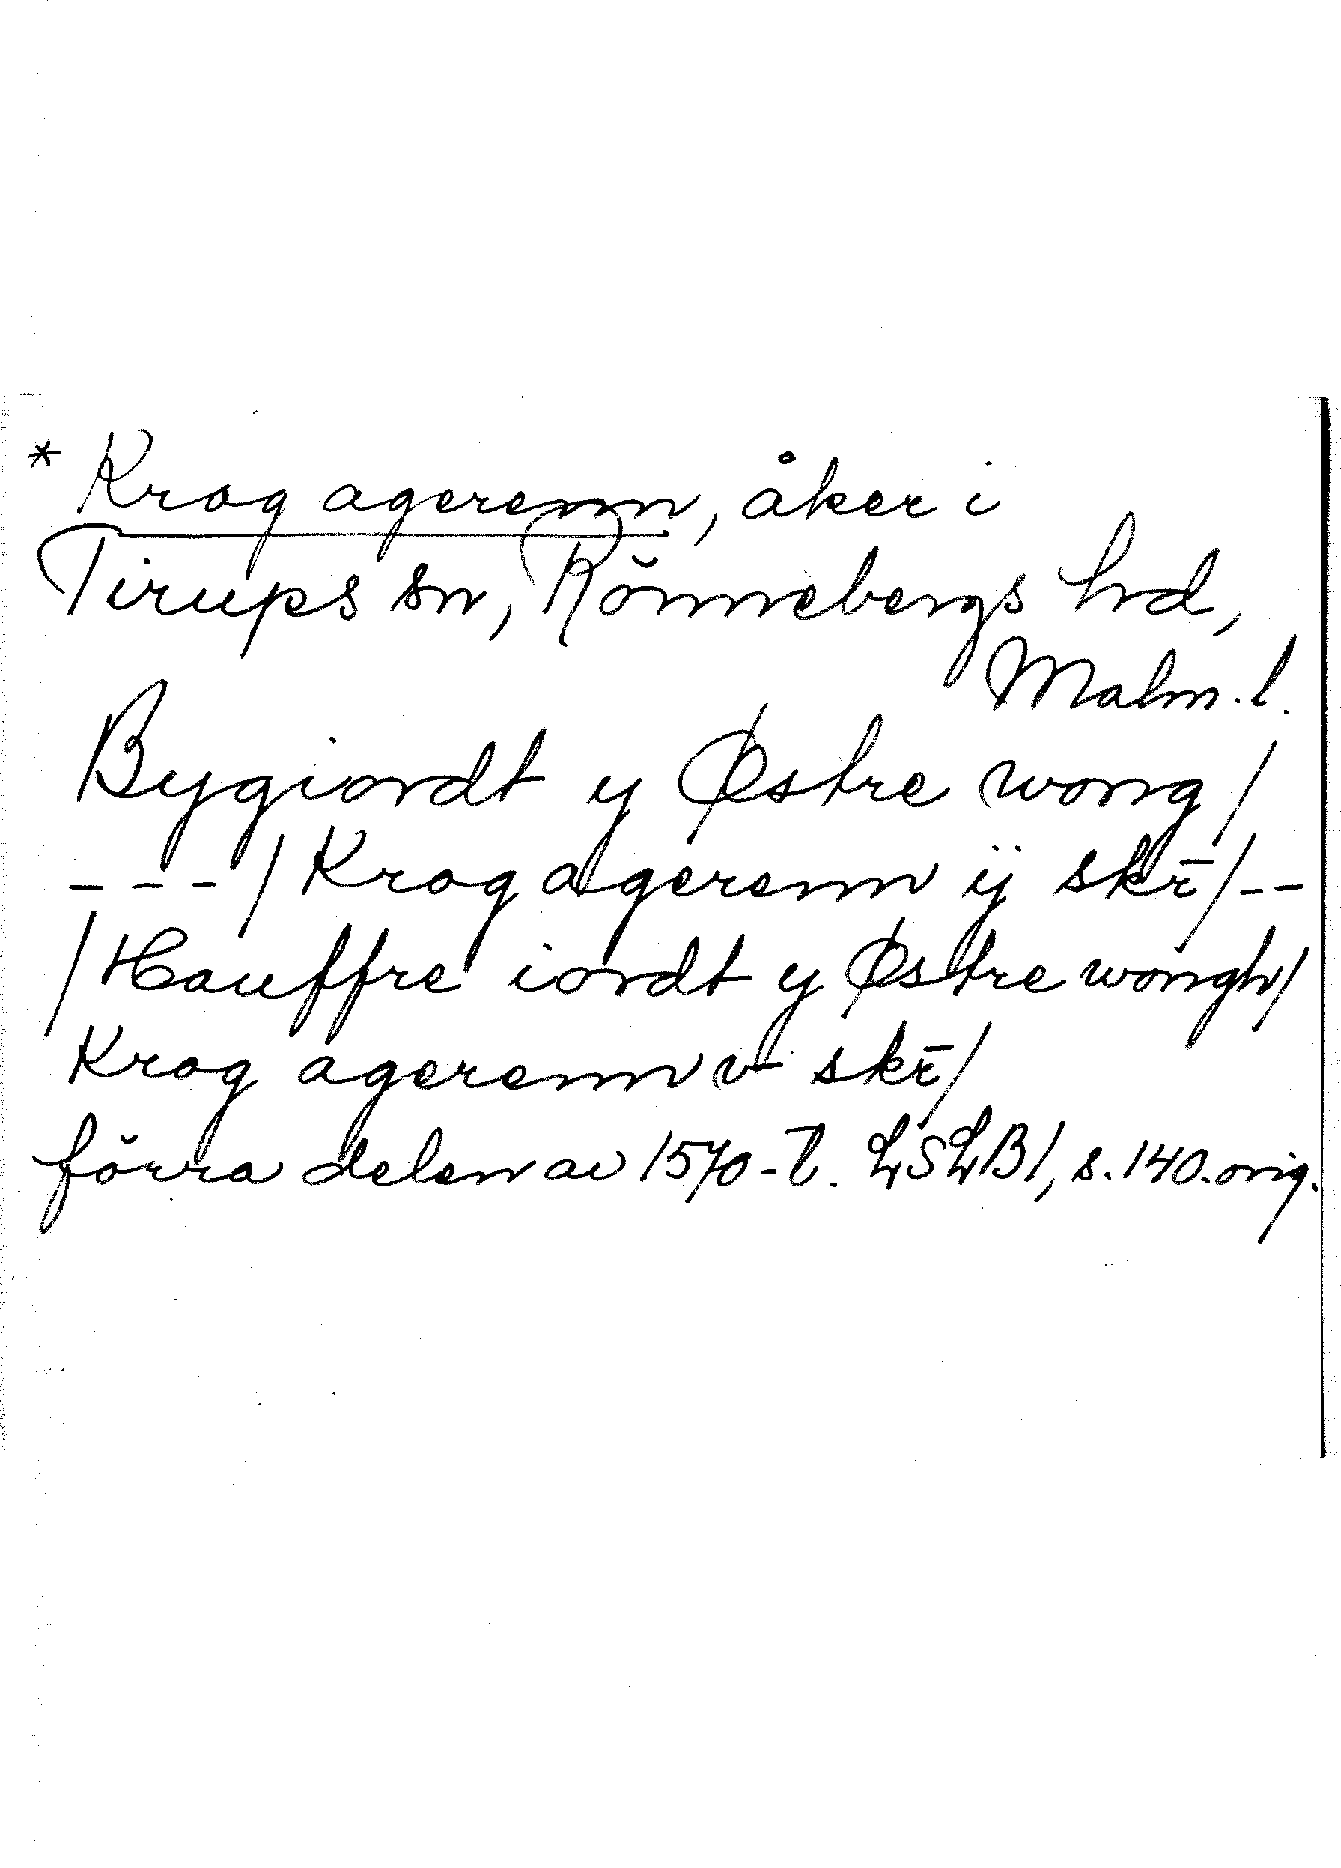 * Krog agerenn, åker i
Tirups sn, Rönnebergs hd,
Malm. l.
Bygiordt y Østre wong/
---/Krog agerenn ÿ skr̄/--
/Hauffre iordt y Østre wongh/
Krog agerenn v skr̄/
förra delen av 1570-t. LSLB1, s. 140. orig.